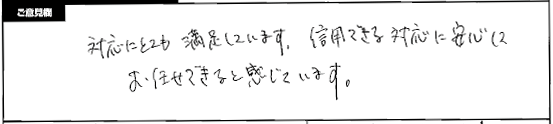 ご意見欄
対応にとても満足しています。信用できる対応に安心して
お任せできると感じています。